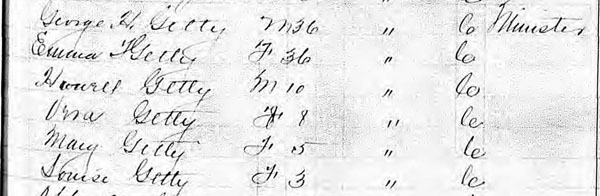 George H. Getty M 36 " Co Minister
Emma F Getty F 36 " Co
Howell Getty M 10 " Co
Vera Getty F 8 " Co
Mary Getty F 5 " Co
Louise Getty F 3 " Co